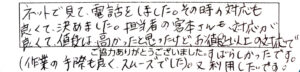 ネットで見て、電話をしました。その時の対応も
良くて、決めました。担当者の宮本さんも、対応が
良くて、値段は高かったと思ったけど、お値段以上の対応で
ご協力ありがとうございました。すばらしかったです。
(作業の手際も良く、スムーズでした)又利用したいです。